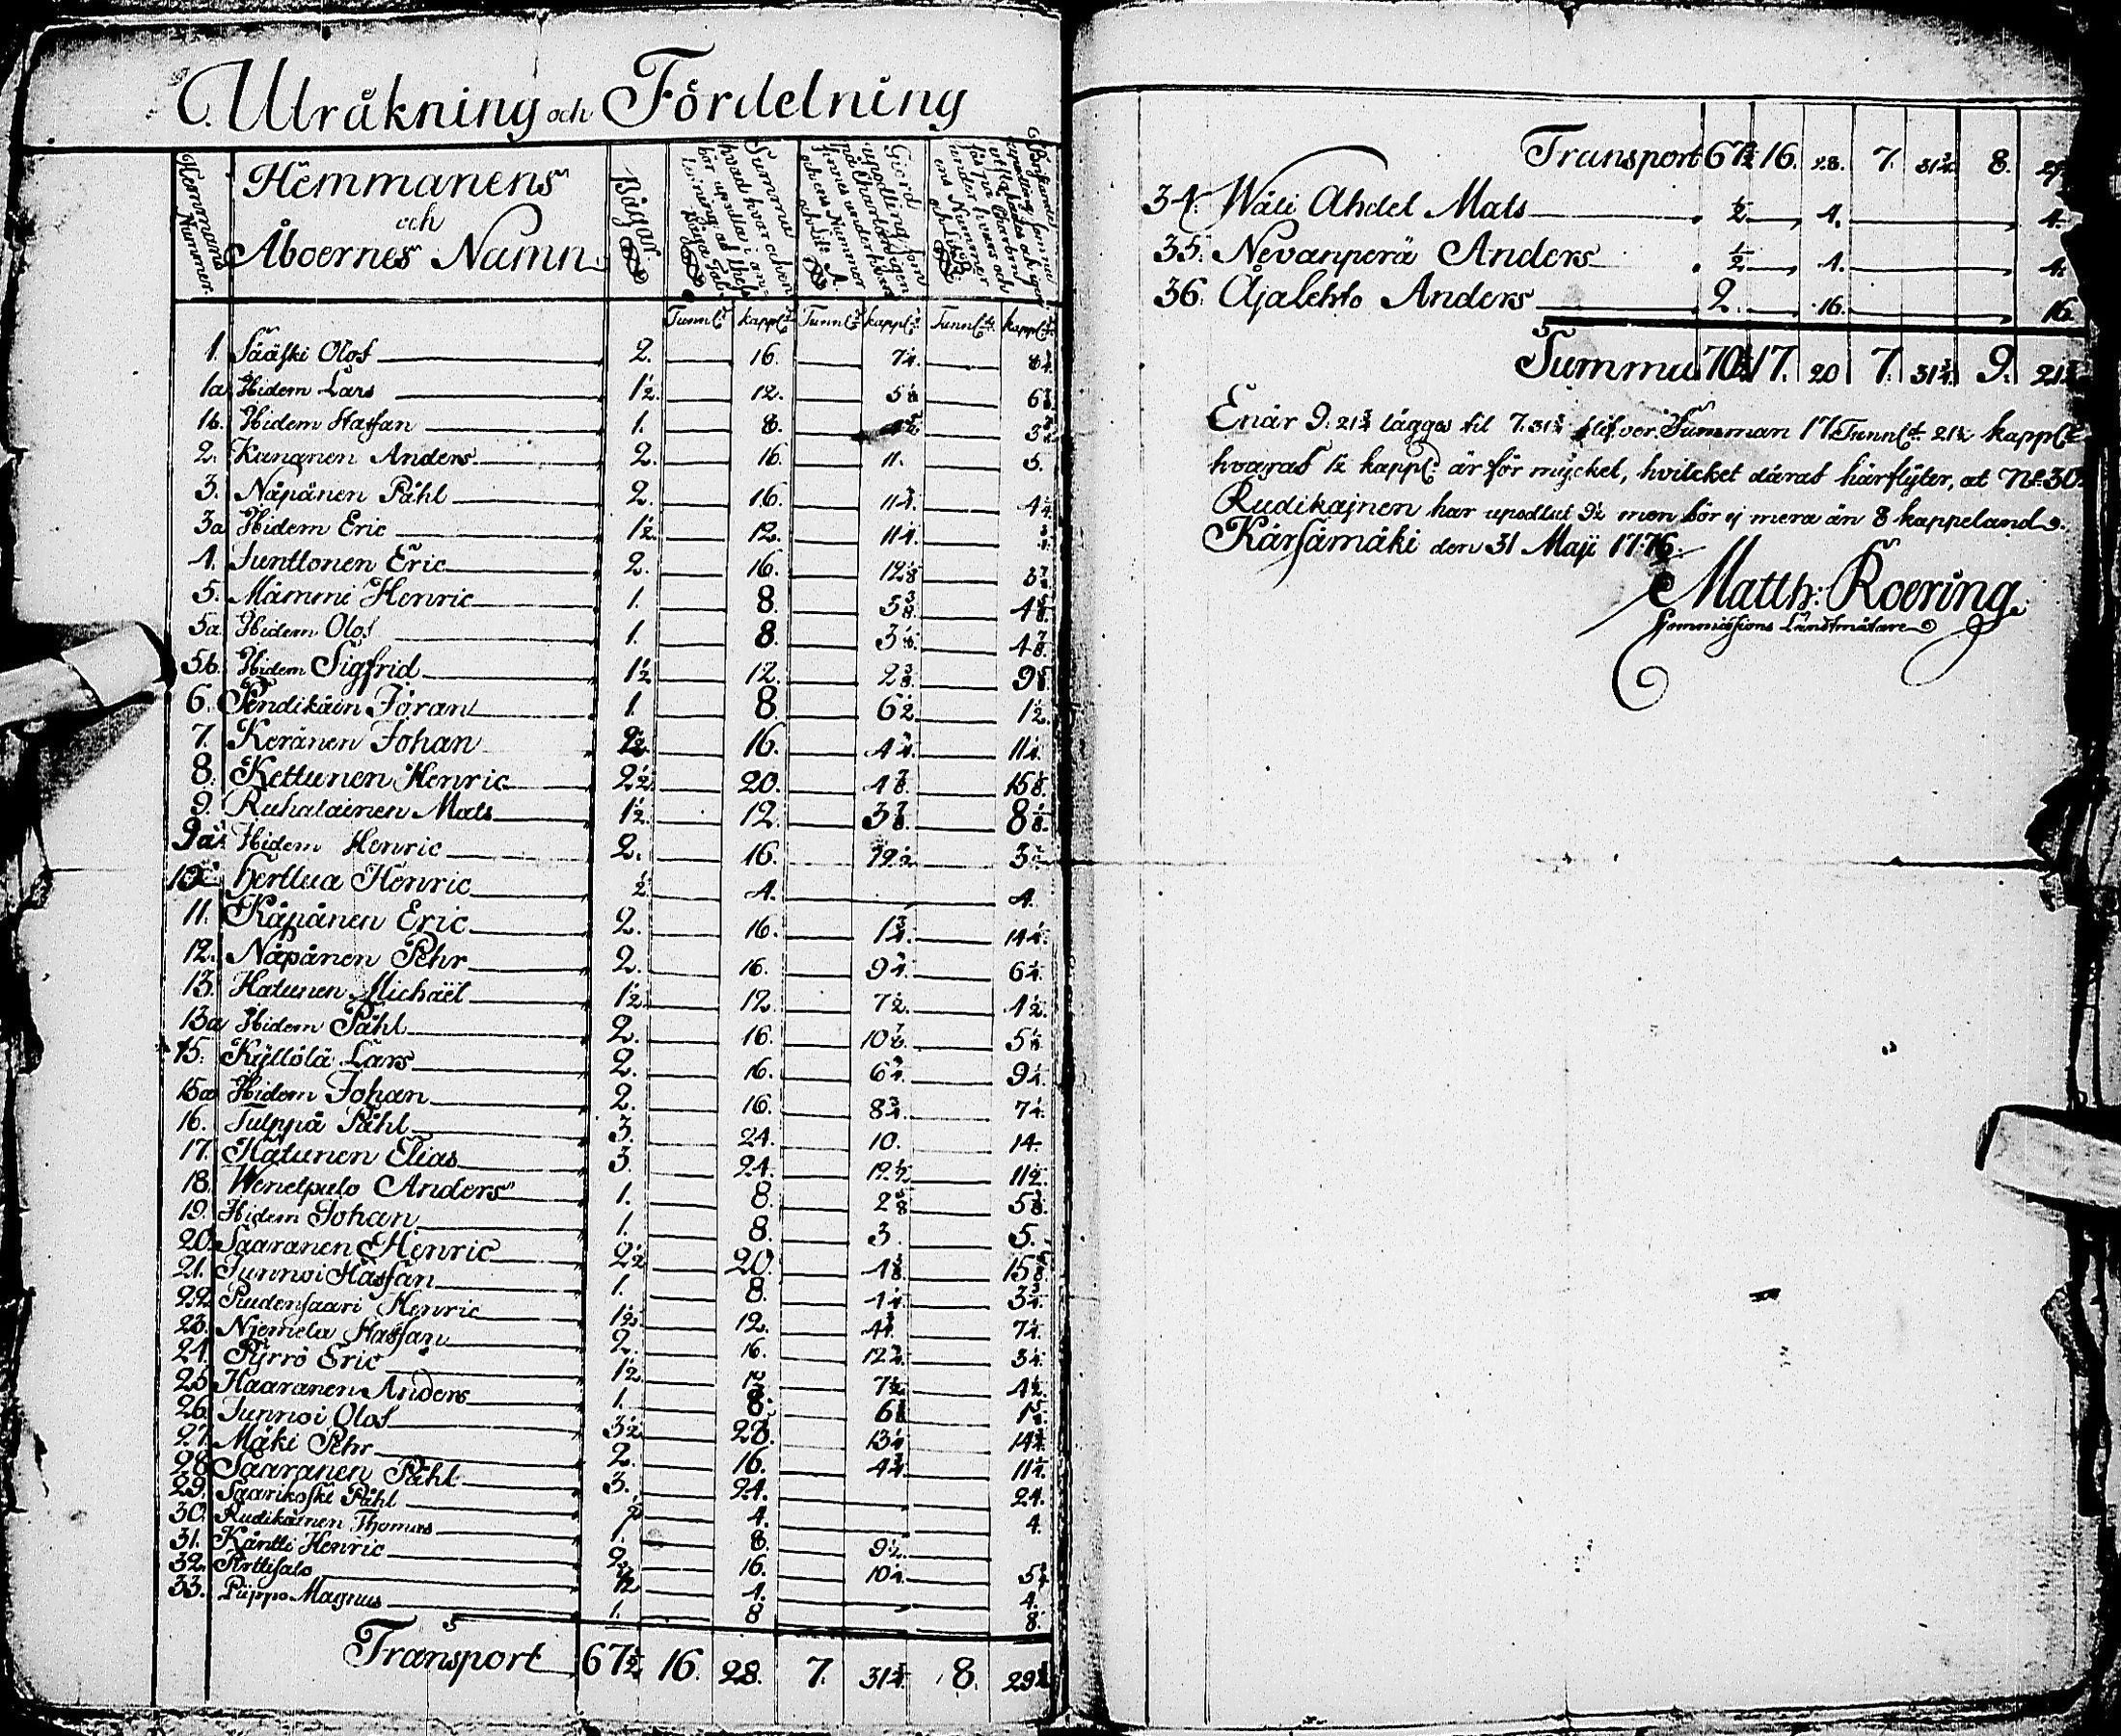 Uträkning och Fördelning
Hemmans Nummer.
Hemmanens
och
Åboernes Namn.
Bågar
Summa hvad hvar och en bör upodla i
Giord upodling som finnes under hvars och ens Nummer och Lit. A.
Tunnl.d kappl.d Tunnl.d kappl.d Tunnl.d kappl.d
1. Sääski Olof 2. 16. 7 3/4. 8 1/4
1a Hidem Lars 1 1/2. 12. 5 1/8 6 7/8
1b. Hidem Staffan 1. 8. 3 3/4
2. Kananen Anders 2. 16. 11. 5.
3. Näpänen Påhl 2. 16. 11 3/4. 4 1/4
3a Hidem Eric 1 1/2. 12. 11 1/4.
4. Junttonen Eric 2. 16. 12 1/8 3 7/8
5. Mämmi Henric 1. 8. 5 3/8.
5a Hidem Olof 1. 8. 3 1/8. 4 7/8.
5b. Hidem Sigfrid 1 1/2 12. 2 3/8. 9 5/8.
6. Pendikäin Jöran 1. 8 6 1/2 1 1/2.
7. Keränen Johan 16. 4 3/4. 11 1/4.
8. Kettunen Henric 2 1/2. 20. 4 7/8. 15 1/8.
9. Ruhalainen Mats 1 1/2. 12. 3 7/8. 8 1/8.
9a. Hidem Henric 2. 16. 12 1/2. 3 1/2
10. Herttua Henric 1/2 4. 4.
11. Käpänen Eric 2. 16. 1 3/4. 14 1/4.
12. Näpänen Pehr 2. 16. 9 3/4. 6 1/4.
13. Hatunen Michaël 1 1/2. 12 7 1/2. 4 1/2.
13a Hidem Påhl 2. 16. 10 7/8. 5 1/8.
15. Kyllölä Lars 2. 16. 6 3/4. 9 1/4.
15a Hidem Johan 2. 16. 8 3/4. 7 1/4.
16. Tulppå Påhl 3. 24. 10. 14.
17. Hatunen Elias 3. 24. 12 1/2. 11 1/2.
18. Wenelpalo Anders 1. 8. 2 5/8 5 3/8.
19. Hidem Johan 1. 8. 3. 5.
20. Saaranen Henric 2 1/2 20. 4 1/8. 15 7/8.
21. Junnoi Hassan 1. 8. 4 1/4. 3 3/4.
22. Pudensaari Henric 1 1/2. 12. 4 3/4. 7 1/4.
23. Njemelä Staffan 2. 16. 12 3/4. 3 1/4.
24. Pyrrö Eric 1 1/2. 12. 7 1/2. 4 1/2.
25 Haaranen Anders 1. 8. 6
26. Junnoi Olof 3 1/2 28. 13 1/4. 14 3/4.
27. Mäki Pehr 2. 16. 4 3/4. 11 1/4.
28. Saaranen Påhl 3. 24. 24.
29. Saarikoski Påhl 4. 4.
30. Rudikäinen Thomas 1. 8. 9 1/2.
31. Käntti Henric 2. 16. 10 1/4. 5 3/4
32. Arttisalo 1/2 4. 4.
33. Piippo Magnus 1. 8 8.
Transport 67 1/2 16. 28. 7. 31 3/4. 8. 29
Transport 67 1/2 16. 28. 7. 31 3/4. 8. 29
34. Wäli Ahdet Mats 1/2 4. 4.
35. Nevanperä Anders 1/2 4. 4.
36. Ajalehto Anders 2. 16. 16.
Summa 70 1/2 17. 20 7. 31 3/4. 9. 21
Enär 9. 21 3/4 lägges til 7. 31 3/4 blifver Summan 17 Tunnl.d 21 1/2 kappl.d
hvaraf 1 1/2 kappl.d är för mycket, hvilcket däraf härflyter, at N:o 30.
Rudikajnen har upodlat 9 1/2 men bör ej mera än 8 kappeland.
Kärsämäki den 31 Maji 1776.
Matth: Roering.
Commissions Landtmätare